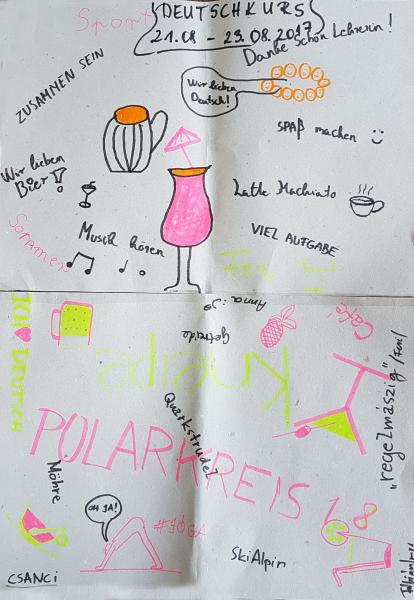 Sport
DEUTSCHKURS
21.08 - 29.08.2017
Danke schön Lehrerin!
ZUSAMMEN SEIN
Wir lieben
Deutsch!
SPAß machen
Wir lieben
Bier!
Latte Machiato
Sommer
Musik hören
VIEL AUFGABE
ICH DEUTSCH
Anna :)
getreide
Café
Kneipe
"regelmászig"
Quarkstrudel
POLARKREIS 18
Möhre
OH JA!
#JOGA
SkiAlpin
CSANCI